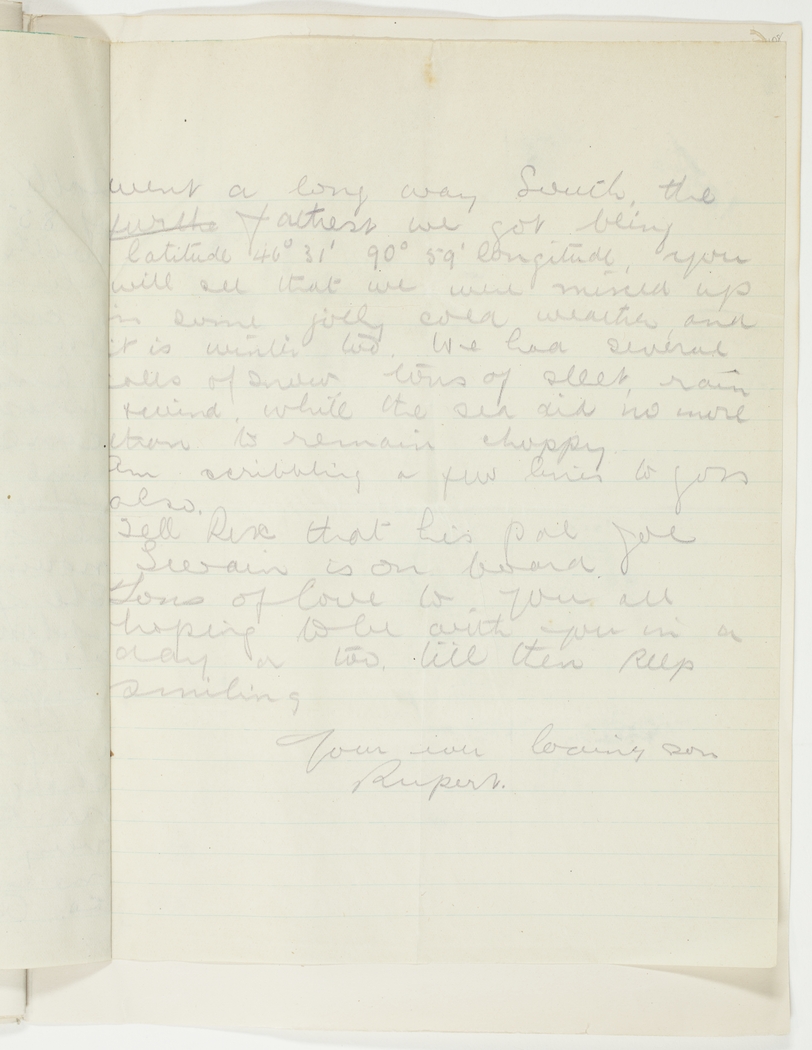 went a long way South, the
furth fathest we got being
latitude 46° 31' 90° 59' longitude, you
will see that we were mixed up
in some jolly cold weather, and
it is winter too. We had several
falls of snow tons of sleet, rain
& wind, while the sea did no more
than to remain choppy.
Am scribbling a few lines to
also.
Tell Rex that his pal Joe
Swain is on board
Tons of love to you all
hoping to be with you in a
day or two, till then keep
smiling
Your loving son
Rupert.